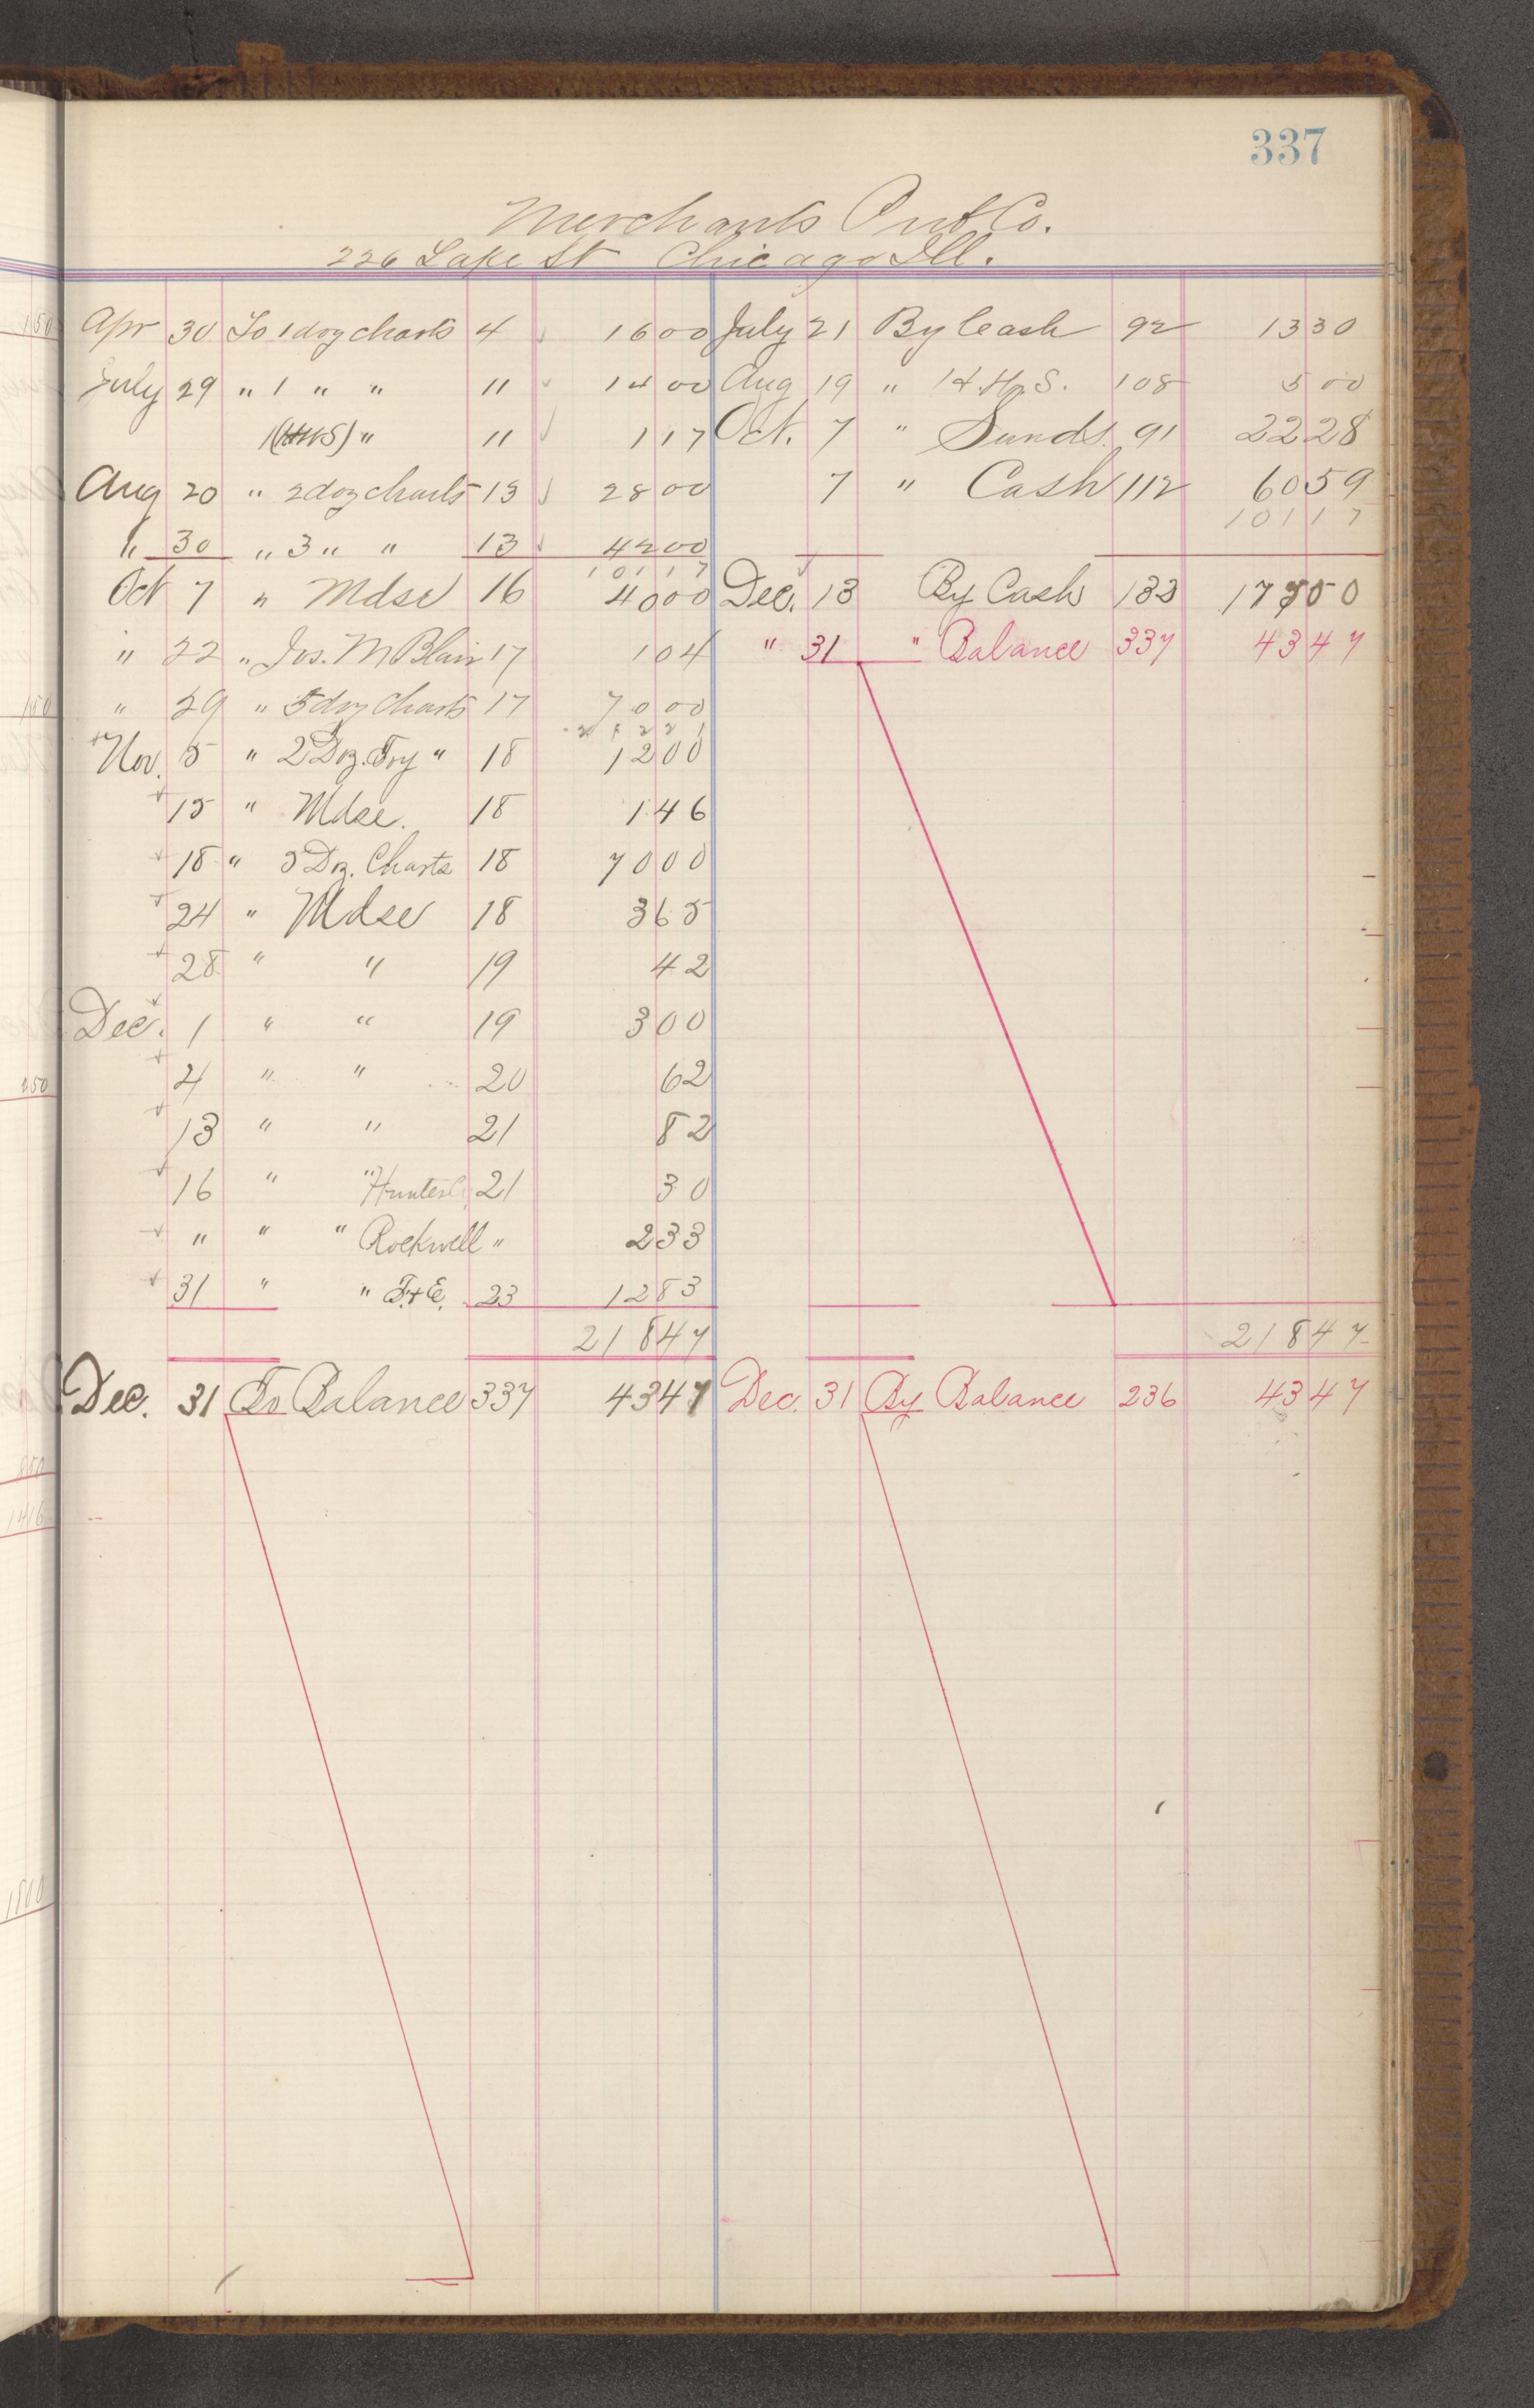 337
Merchants Pub Co.
226 Lake St Chicago Ill.
Apr 30 To 1 doz charts 4 16 00 July 21 By Cash 92 13 30
July 29 " 1 " " 11 14 00 Aug 19 " H.H.S. 108 5 00
" 11 1 17 Oct. 7 " Sunds. 91 22 28
Aug 20 " 2 doz charts 13 28 00 7 " Cash 112 60 59
101 17
" 30 " 3 " " 13 42 00
101 17
Oct 7 " Mdse 16 40 00 Dec. 13 By Cash 133 175 00
" 22 " Jos. M Blair 17 1 04 " 31 " Balance 337 43 47
" 29 " 5 doz Charts 17 70 00
Nov. 5 " 2 Doz. Toy " 18 12 00
15 " Mdse. 18 1 46
18 " 5 Doz. Charts 18 70 00
24 " Mdse 18 3 65
28 " " 19 42
Dec. 1 " " 19 3 00
4 " " 20 62
13 " " 21 82
16 " " Hunter 21 30
" " " Rockwell " 2 33
31 " " F. & E. 23 12 83
218 47 218 47
Dec. 31 To Balance 337 43 47 Dec. 31 By Balance 236 43 47
150
150
250
850
1416
1800